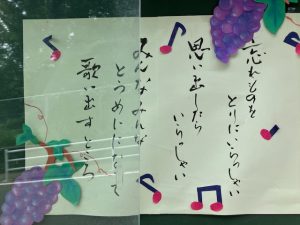 忘れものを
とりにいらっしゃい
思い出したら
いらっしゃい
みんなみんな
とうめいになって
歌い出すところ